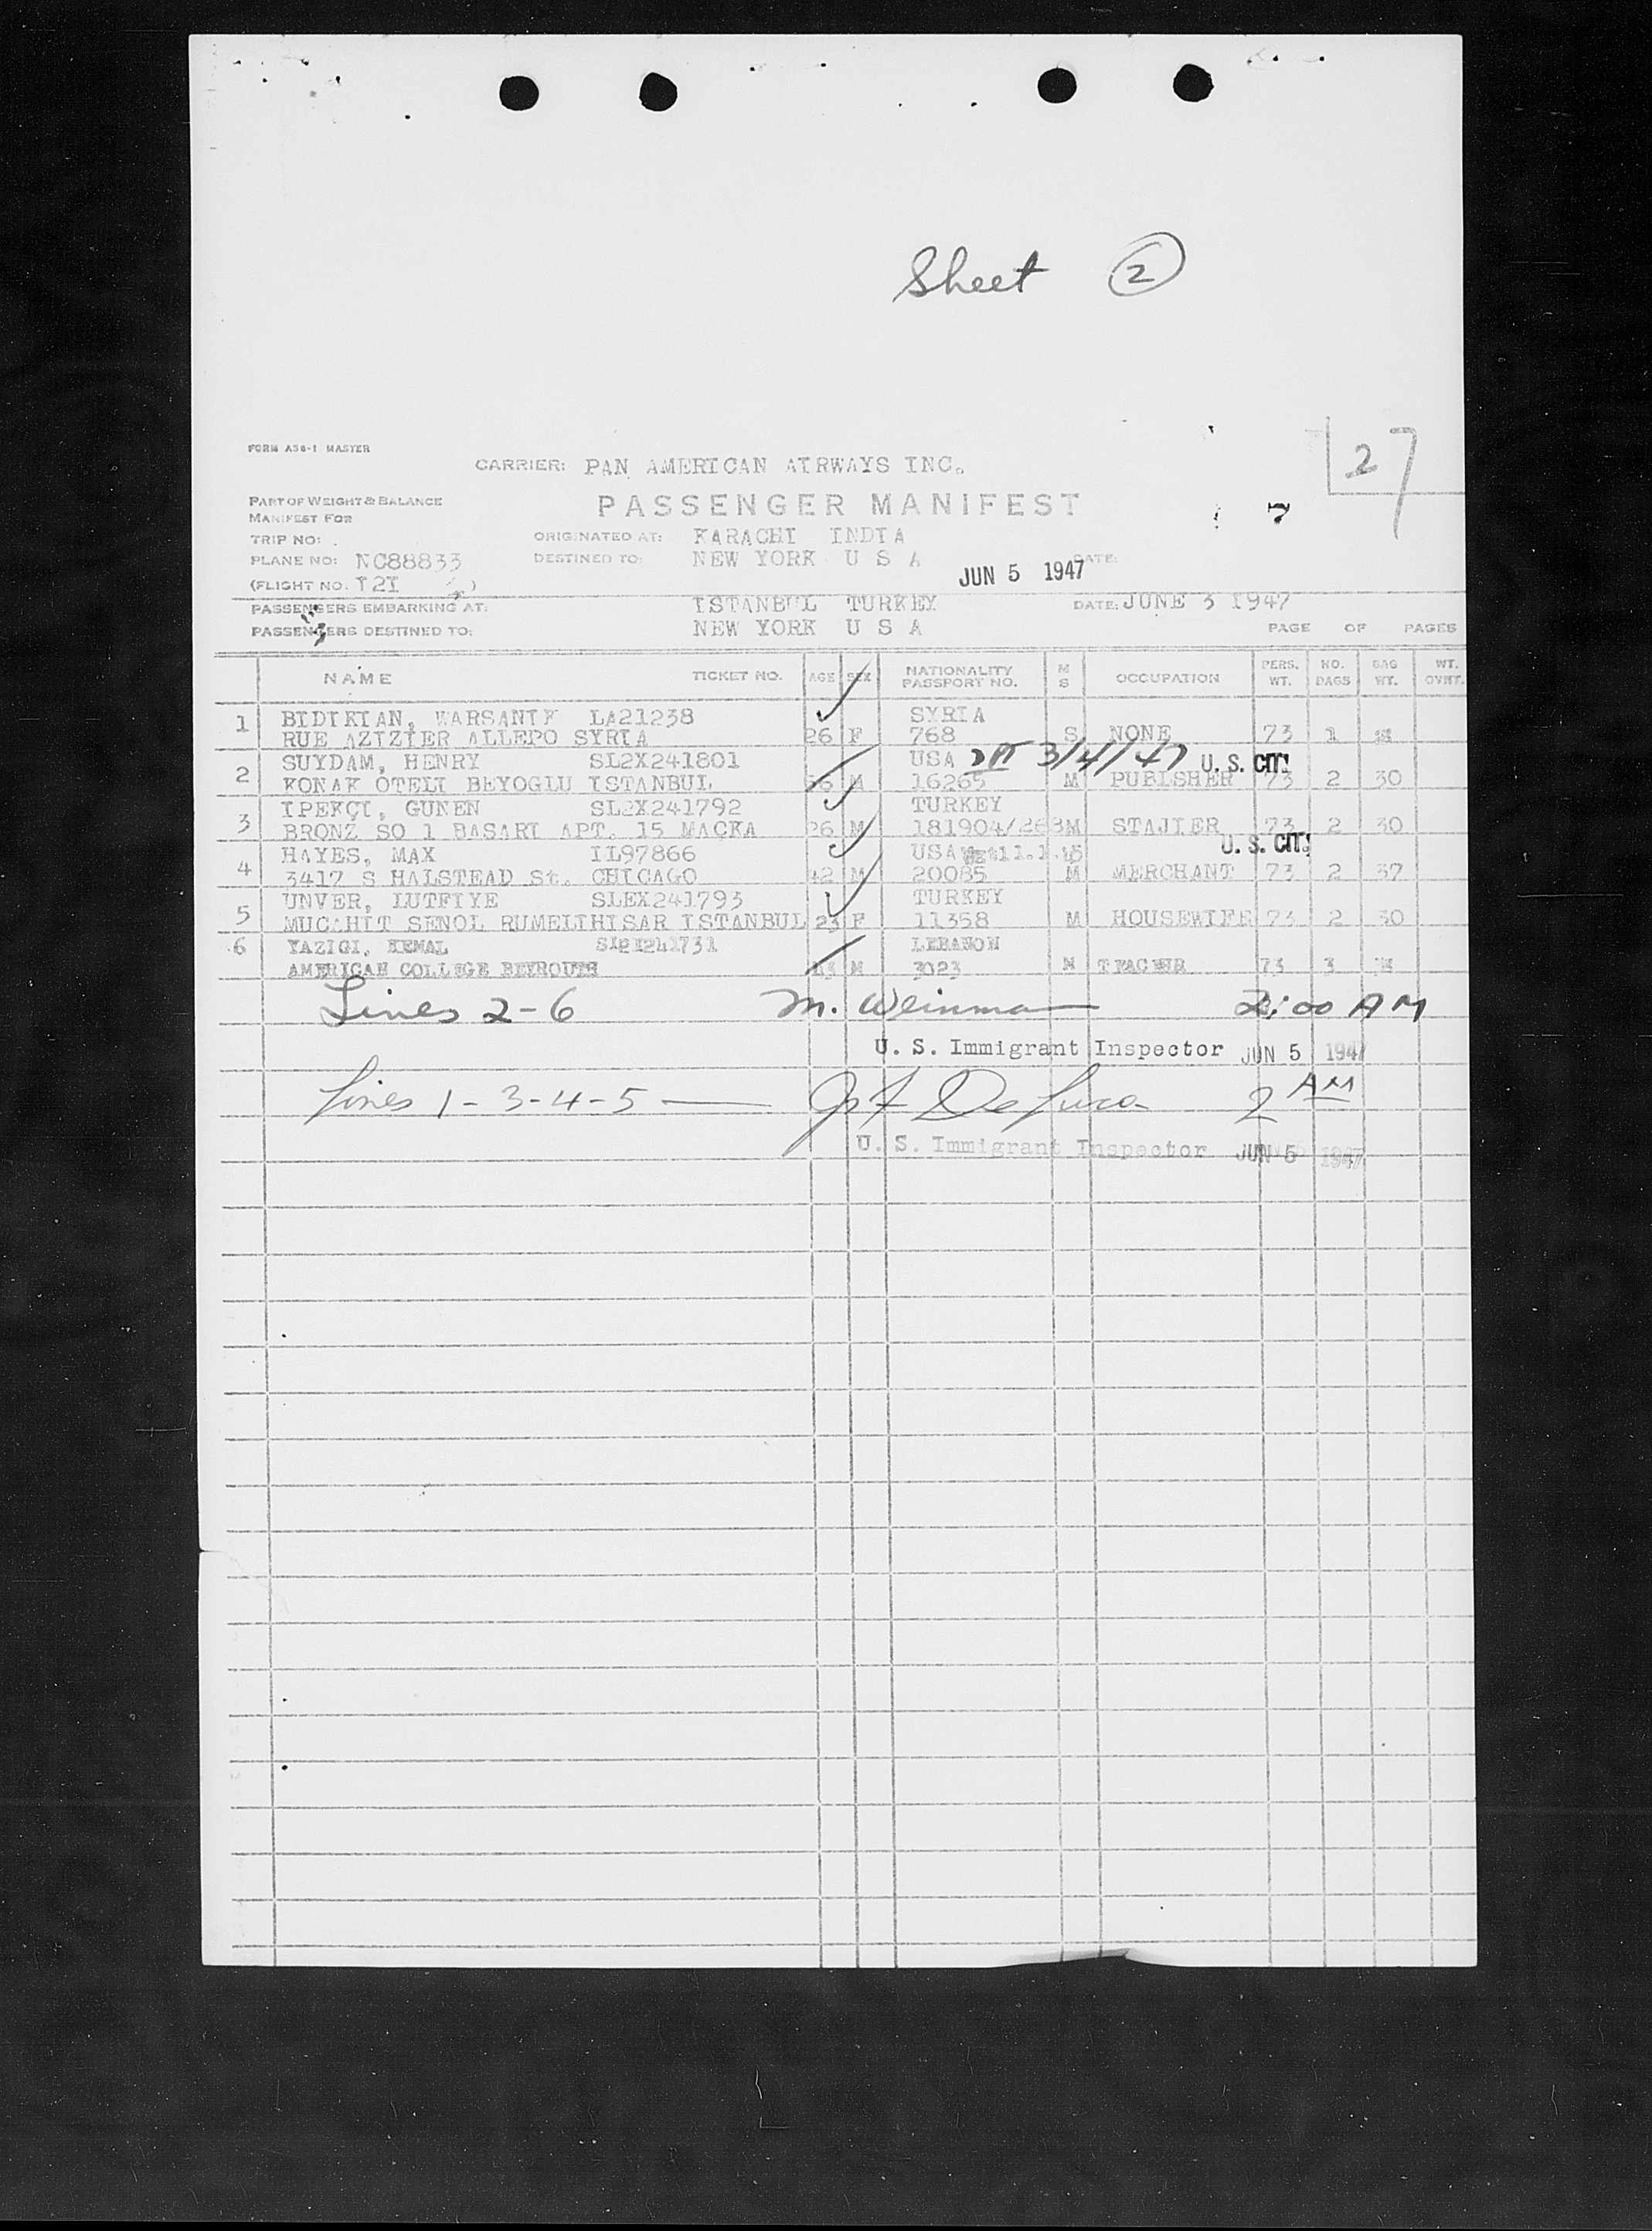 Sheet 2
27
FORM AS6-1 MASTER
CARRIER: PAN AMERICAN AIRWAYS INC.
PART OF WEIGHT & BALANCE
PASSENGER MANIFEST
MANIFEST FOR
7
TRIP NO:
ORIGINATED AT: KARACHI INDIA
PLANE NO: NC88833
DESTINED TO: NEW YORK U S A
DATE:
JUN 5 1947
(FLIGHT NO. 121 )
PASSENGERS EMBARKING AT: ISTANBUL TURKEY DATE: JUNE 3 1947
PASSENGERS DESTINED TO: NEW YORK U S A PAGE OF PAGES
NAME TICKET NO. AGE SEX NATIONALITY PASSPORT NO. M S OCCUPATION PERS. WT. NO. BAGS BAG WT. WT. OVWT.
1 BIDIRIAN, WARSANIK LA21238 SYRIA
RUE AZIZIER ALLEPO SYRIA 26 F 768 S NONE 73 1
2 SUYDAM, HENRY SL2X241801 USA 3/4/47 U. S. CIT!
KONAK OTELI BEYOGLU ISTANBUL M 16265 M PUBLISHER 73 2 30
3 IPEKÇI, GUNEN SL2X241792 TURKEY
BRONZ SO 1 BASARI APT. 15 MAÇKA 26 M 181904/268 M STAJIER 73 2 30
4 HAYES, MAX IL97866 USA U. S. CIT!
3417 S HALSTEAD St. CHICAGO 42 M 20085 M MERCHANT 73 2 37
5 UNVER, LUTFIYE SLEX241793 TURKEY
MUCAHIT SENOL RUMELIHISAR ISTANBUL 23 F 11358 M HOUSEWIFE 73 2 30
6 YAZIGI, KEMAL LEBANON
AMERICAN COLLEGE BEYROUTH M 3023 M TEACHER 73 3
Lines 2-6 M. Weinman 2:00 AM
U. S. Immigrant Inspector JUN 5 1947
Lines 1-3-4-5 De Luca 2 AM
U. S. Immigrant Inspector JUN 5 1947